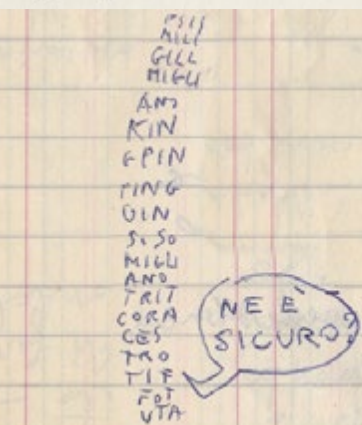 MILI
GILL
MIGLI
ANO
KIN
EPIN
PING
OIN
S. SO
MIGLI
ANO
TRIT
CORA
CES
TRO
TIF
FOT
UTA
NE È
SICURO?